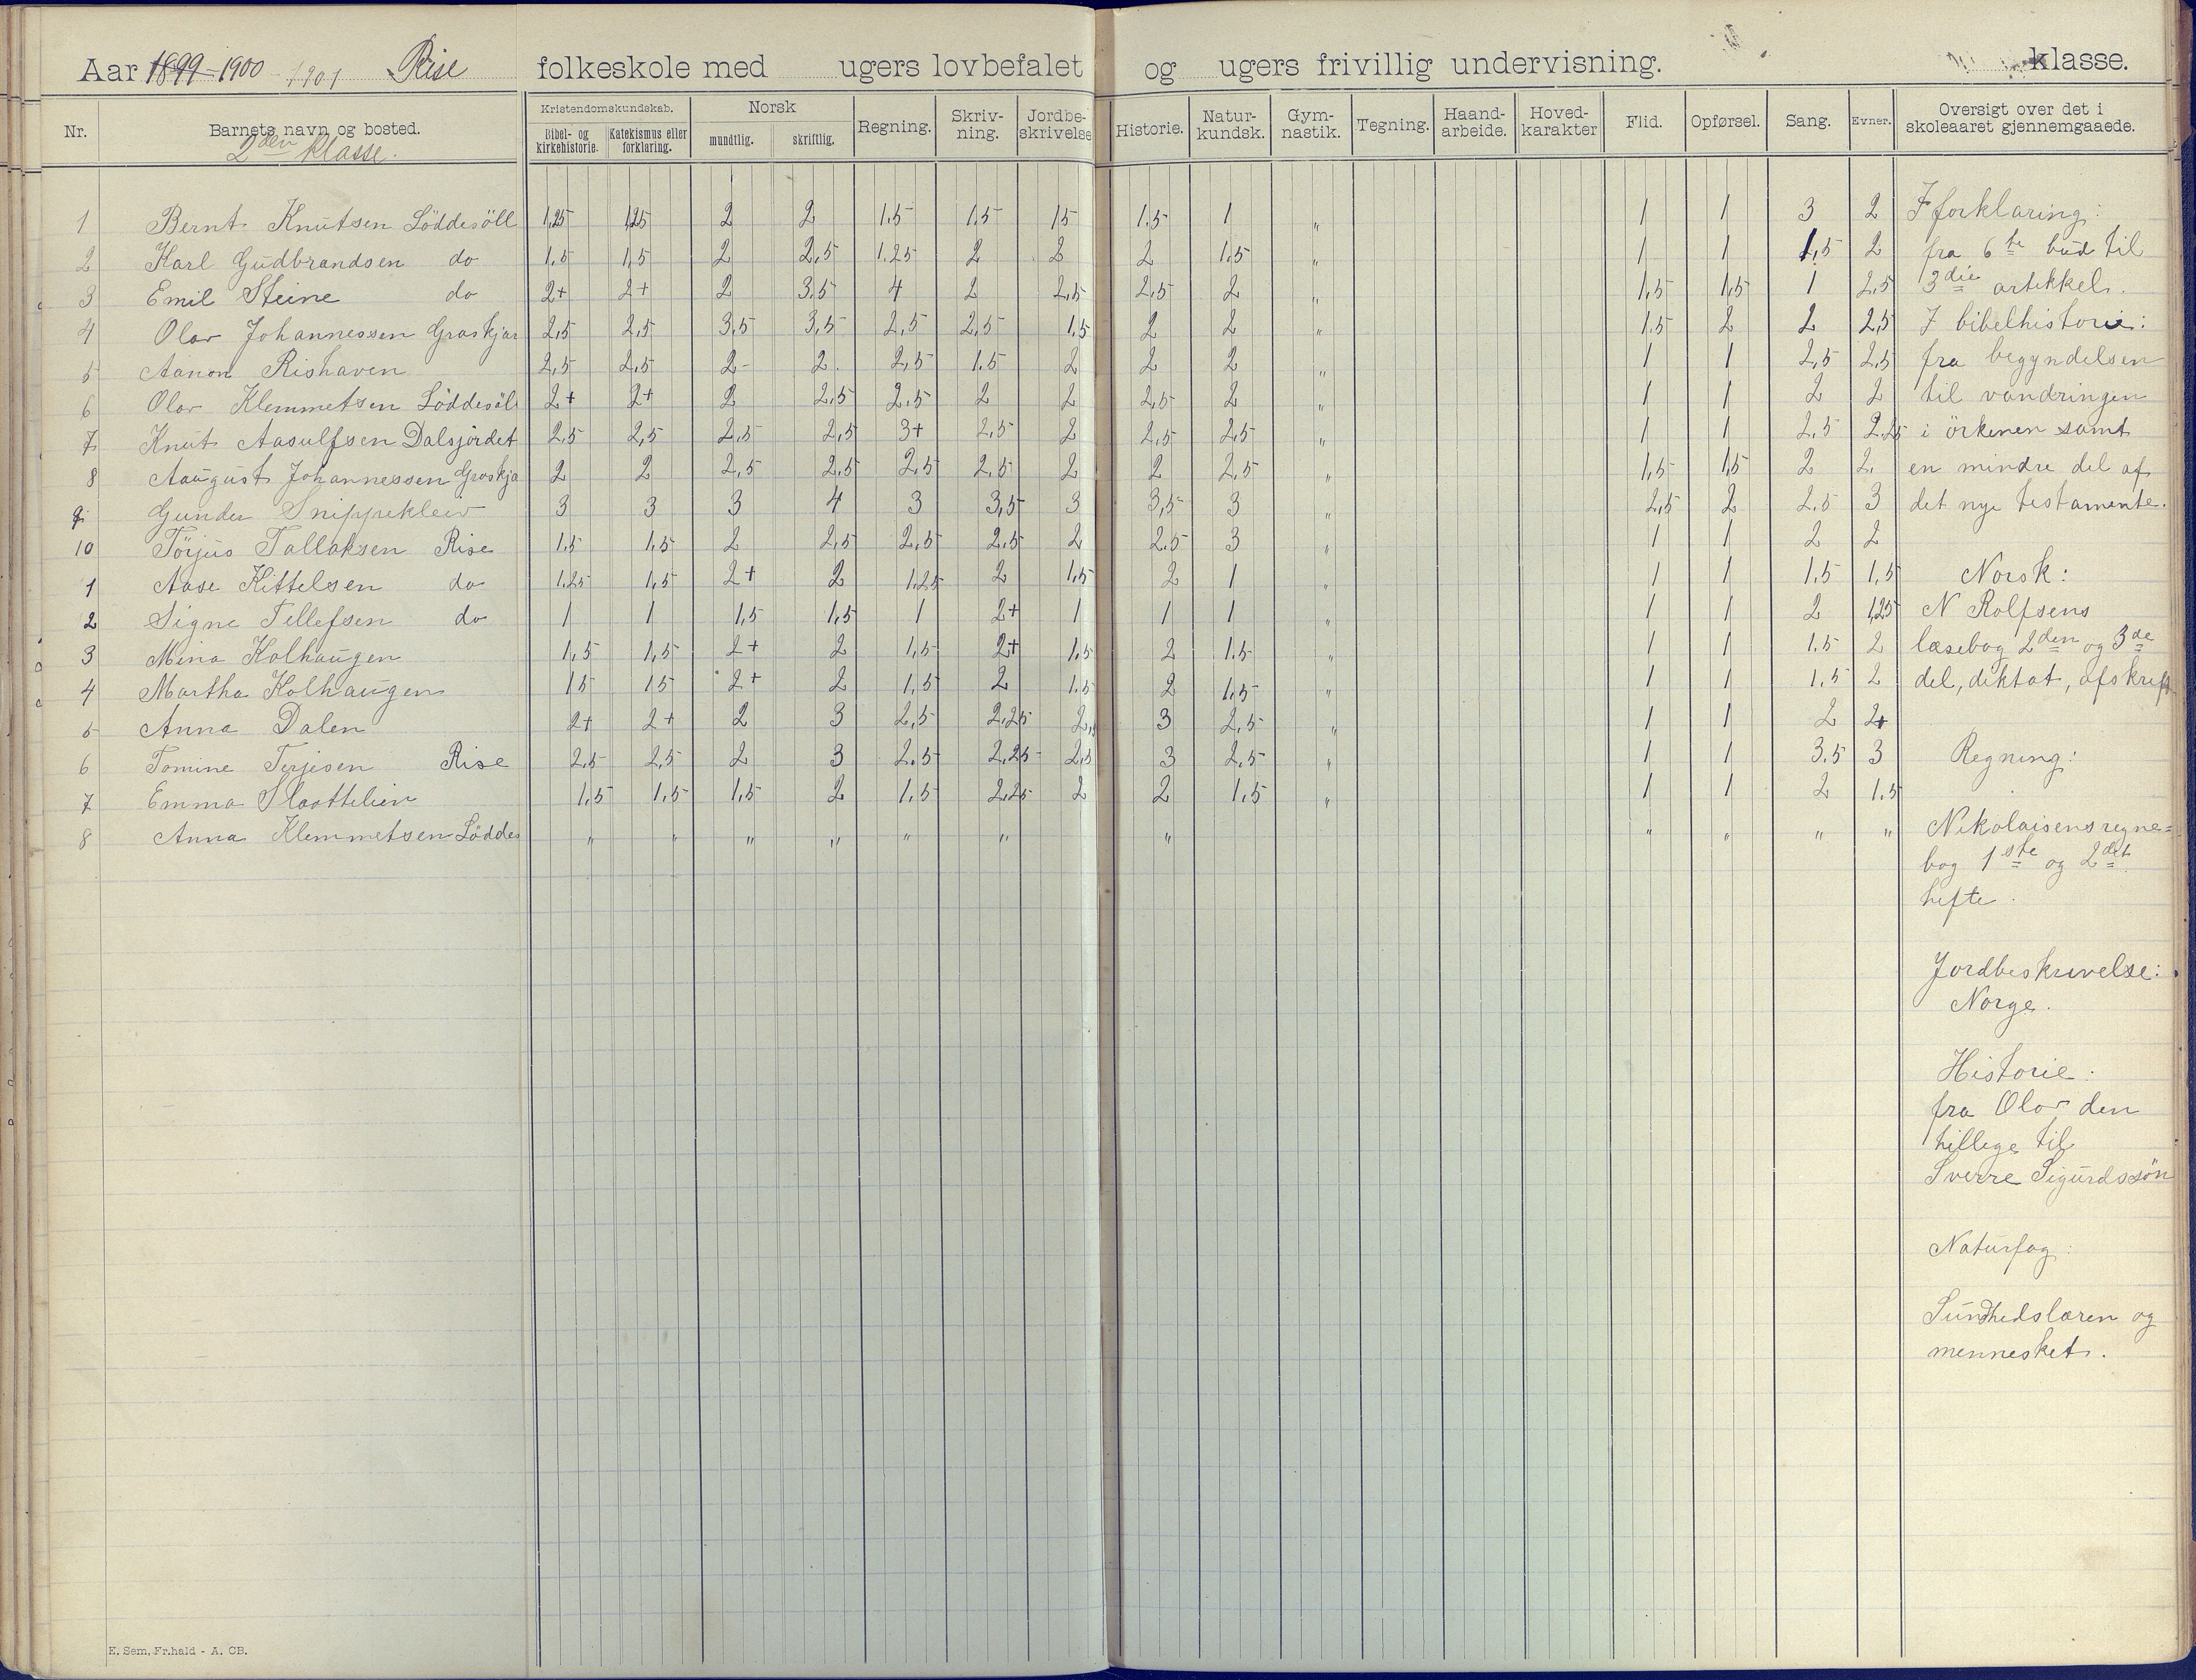 Aar 1899-1900 1901 Rise folkeskole med ugers lovbefalet og ugers frivillig undervisning. klasse.
Nr. Barnets navn og bosted. Kristendomskundskab. Bibel- og kirkehistorie. Katekismus eller forklaring. Norsk mundtlig. skriftlig. Regning. Skriv-ning. Jordbe-skrivelse Historie. Natur-kundsk. Gym-nastik. Tegning. Haand-arbeide. Hoved-karakter Flid. Opførsel. Sang. Evner. Oversigt over det i skoleaaret gjennemgaaede.
2den klasse.
1 Bernt Knutsen Löddesöll 1,25 1,25 2 2 1.5 1.5 1,5 1.5 1 „ 1 1 3 2 I forklaring:
2 Karl Gudbrandsen do 1.5 1,5 2 2,5 1.25 2 2 2 1.5 „ 1 1 1,5 2 fra 6te bud til
3 Emil Steine do 2+ 2+ 2 3.5 4 2 2,5 2,5 2 „ 1,5 1,5 1 2,5 3die artikkel.
4 Olav Johannessen Groskjær 2,5 2,5 3.5 3,5 2,5 2,5 1.5 2 2 „ 1.5 2 2 2,5 I bibelhistorie:
5 Aanon Rishaven 2,5 2,5 2- 2. 2,5 1.5 2 2 2 „ 1 1 2,5 2,5 fra begyndelsen
6 Olav Klemmetsen Löddesöl 2+ 2+ 2 2,5 2.5 2 2 2,5 2 „ 1 1 2 2 til vandringen
7 Knut Aasulfsen Dalsjordet 2,5 2,5 2,5 2,5 3+ 2,5 2 2,5 2,5 „ 1 1 2,5 2.25 i örkenen samt
8 Aaugust Johannessen Groskjæ 2 2 2,5 2,5 2,5 2.5 2 2 2,5 „ 1,5 1,5 2 2. en mindre del af
9 Gunder Snippeklev 3 3 3 4 3 3,5 3 3,5 3 „ 2,5 2 2.5 3 det nye testamente.
10 Törjus Tallaksen Rise 1.5 1.5 2 2,5 2,5 2.5 2 2.5 3 „ 1 1 2 2
1 Aase Kittelsen do 1.25 1,5 2+ 2 1,25 2 1,5 2 1 „ 1 1 1.5 1,5 Norsk:
2 Signe Tellefsen do 1 1 1,5 1,5 1 2+ 1 1 1 „ 1 1 2 1,25 N Rolfsens
3 Mina Kolhaugen 1,5 1,5 2+ 2 1,5 2+ 1.5 2 1.5 „ 1 1 1.5 2 læsebog 2den og 3de
4 Martha Kolhaugen 1.5 1.5 2+ 2 1,5 2 1.5 2 1,5 „ 1 1 1.5 2 del, diktat, afskrift
5 Anna Dalen 2+ 2+ 2 3 2,5 2,25 2, 3 2,5 „ 1 1 2 2+
6 Tomine Terjesen Rise 2,5 2,5 2 3 2.5 2,25 2,5 3 2,5 „ 1 1 3.5 3 Regning:
7 Emma Slaattelien 1,5 1.5 1,5 2 1,5 2,25 2 2 1.5 „ 1 1 2 1.5
8 Anna Klemmetsen Löddes „ „ „ „ „ „ „ „ „ „ „ Nikolaisens regne=
bog 1ste og 2det
hefte.
Jordbeskrivelse:
Norge.
Historie:
fra Olav den
hellige til
Sverre Sigurdssön
Naturfag:
Sundhedslæren og
mennesket.
E. Sem, Fr.hald - A. CB.